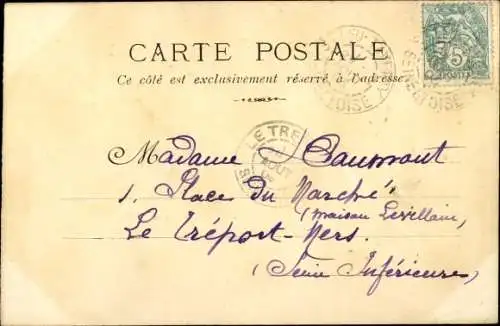 CARTE POSTALE
Ce côté est exclusivement réservé à l'adresse
5
POSTES
SEINE-ET-OISE
LE TRE
AOUT
Madame Caumont
1. Place du Marché
(maison Levillain,
Le Tréport-Mers.
(Seine Inférieure)